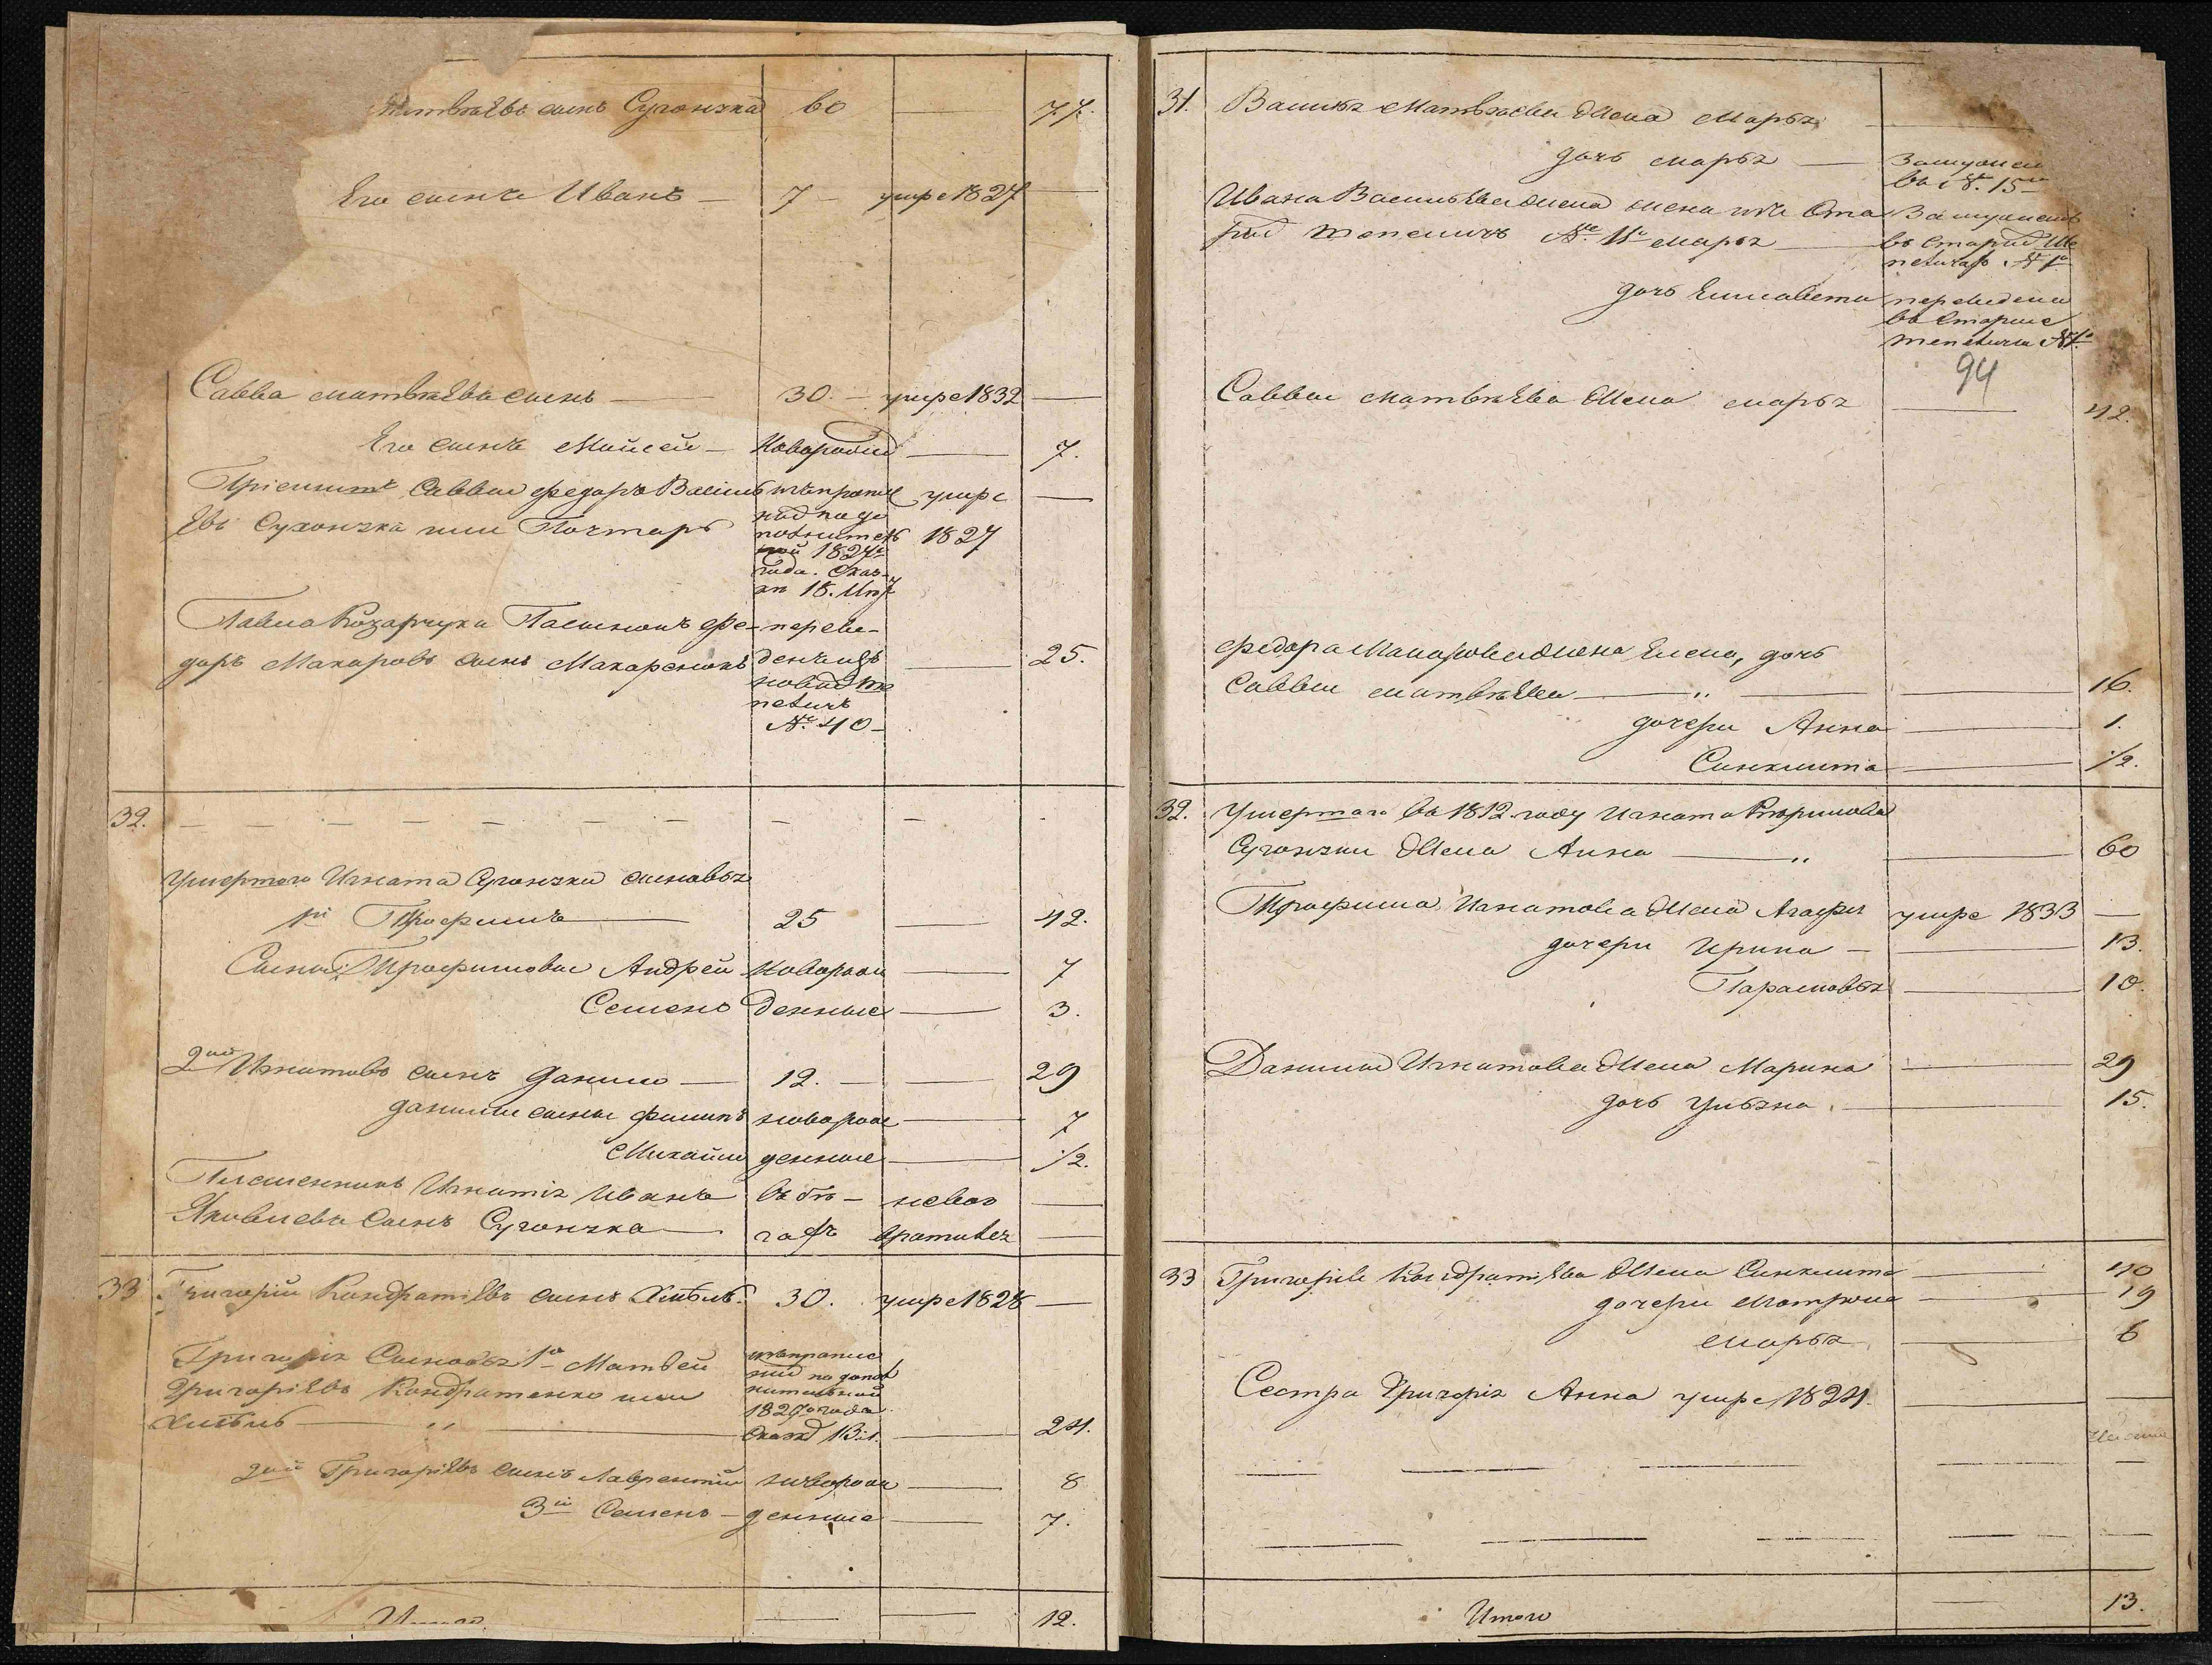 Матвѣевъ сынъ Сугоняка 60 — 77.
Его сынъ Иванъ — 7 — умре 1827 —
Савва Матвѣевъ сынъ — 30. — умре 1832 —
Его сынъ Мойсей — Новорожд — 7.
Пріемышъ Саввы Федоръ Василь
евъ Сухоняка или Почтарь
умре
1827
1827го
года. Сказ-
Павла Козарчука Пасынокъ Фе-
доръ Макаровъ сынъ Макаренокъ — 25.
переве-
денъ изъ
новыхъ Те
пеличъ
№ 40 -
32. — — — — — — — — —
Умершаго Игната Сугоняки сыновья
1й Трофимъ — 25 — 42.
Сыны Трофимовы Андрей новорож — 7
Семенъ денные — 3.
2ий Игнатовъ сынъ Данило — 12. — — 29
Данилы сыны Филипъ новорож — 7
Михайло денные — 1/2.
Племенникъ Игнатія Иванъ въ бѣ- невоз —
Яковлевъ сынъ Сугоняка — гахъ вратився —
33 Григорій Кондратіевъ сынъ 30. умре 1828 —
Григорія Сыновья 1й Матвей
Григоріевъ Кондратенко или
— „ — 24.
по допол
нительной
1827го года
2ий Григоріевъ сынъ Лаврентій новорож — 8
3й Семенъ — денные — 7.
Итого. — — 12.
31. Василя Матвѣева жена Марья —
дочь Марья — Замужемъ
въ № 15
Ивана Васильева жена Ста
рыхъ Тепеличъ № 11 Марья —
Замужемъ
въ Старыхъ Те
пеличахъ № 1
дочь Елисавета переведена
въ Старые
Тепеличи № 1
94
Саввы Матвѣева жена Марья — 42.
Федора Макарова жена Елена, дочь
Саввы Матвѣева — „ — — 16.
дочери Анна — 1.
Синклита — 1/2.
32. Умершаго въ 1812 году Игната
Сугоняки жена Анна — „ — 60
Трофима Игнатова жена Агафія умре 1833 —
дочери Ирина — — 13.
Парасковья — 10.
Данила Игнатова жена Марина — 29
дочь Ульяна. — 15.
33 Григорія Кондратіева жена Синклита — 40
дочери Матрона — 19
Марья — 6
Сестра Григорія Анна умре 1824. — —
— — — — —
— — — — —
Итого — 13.